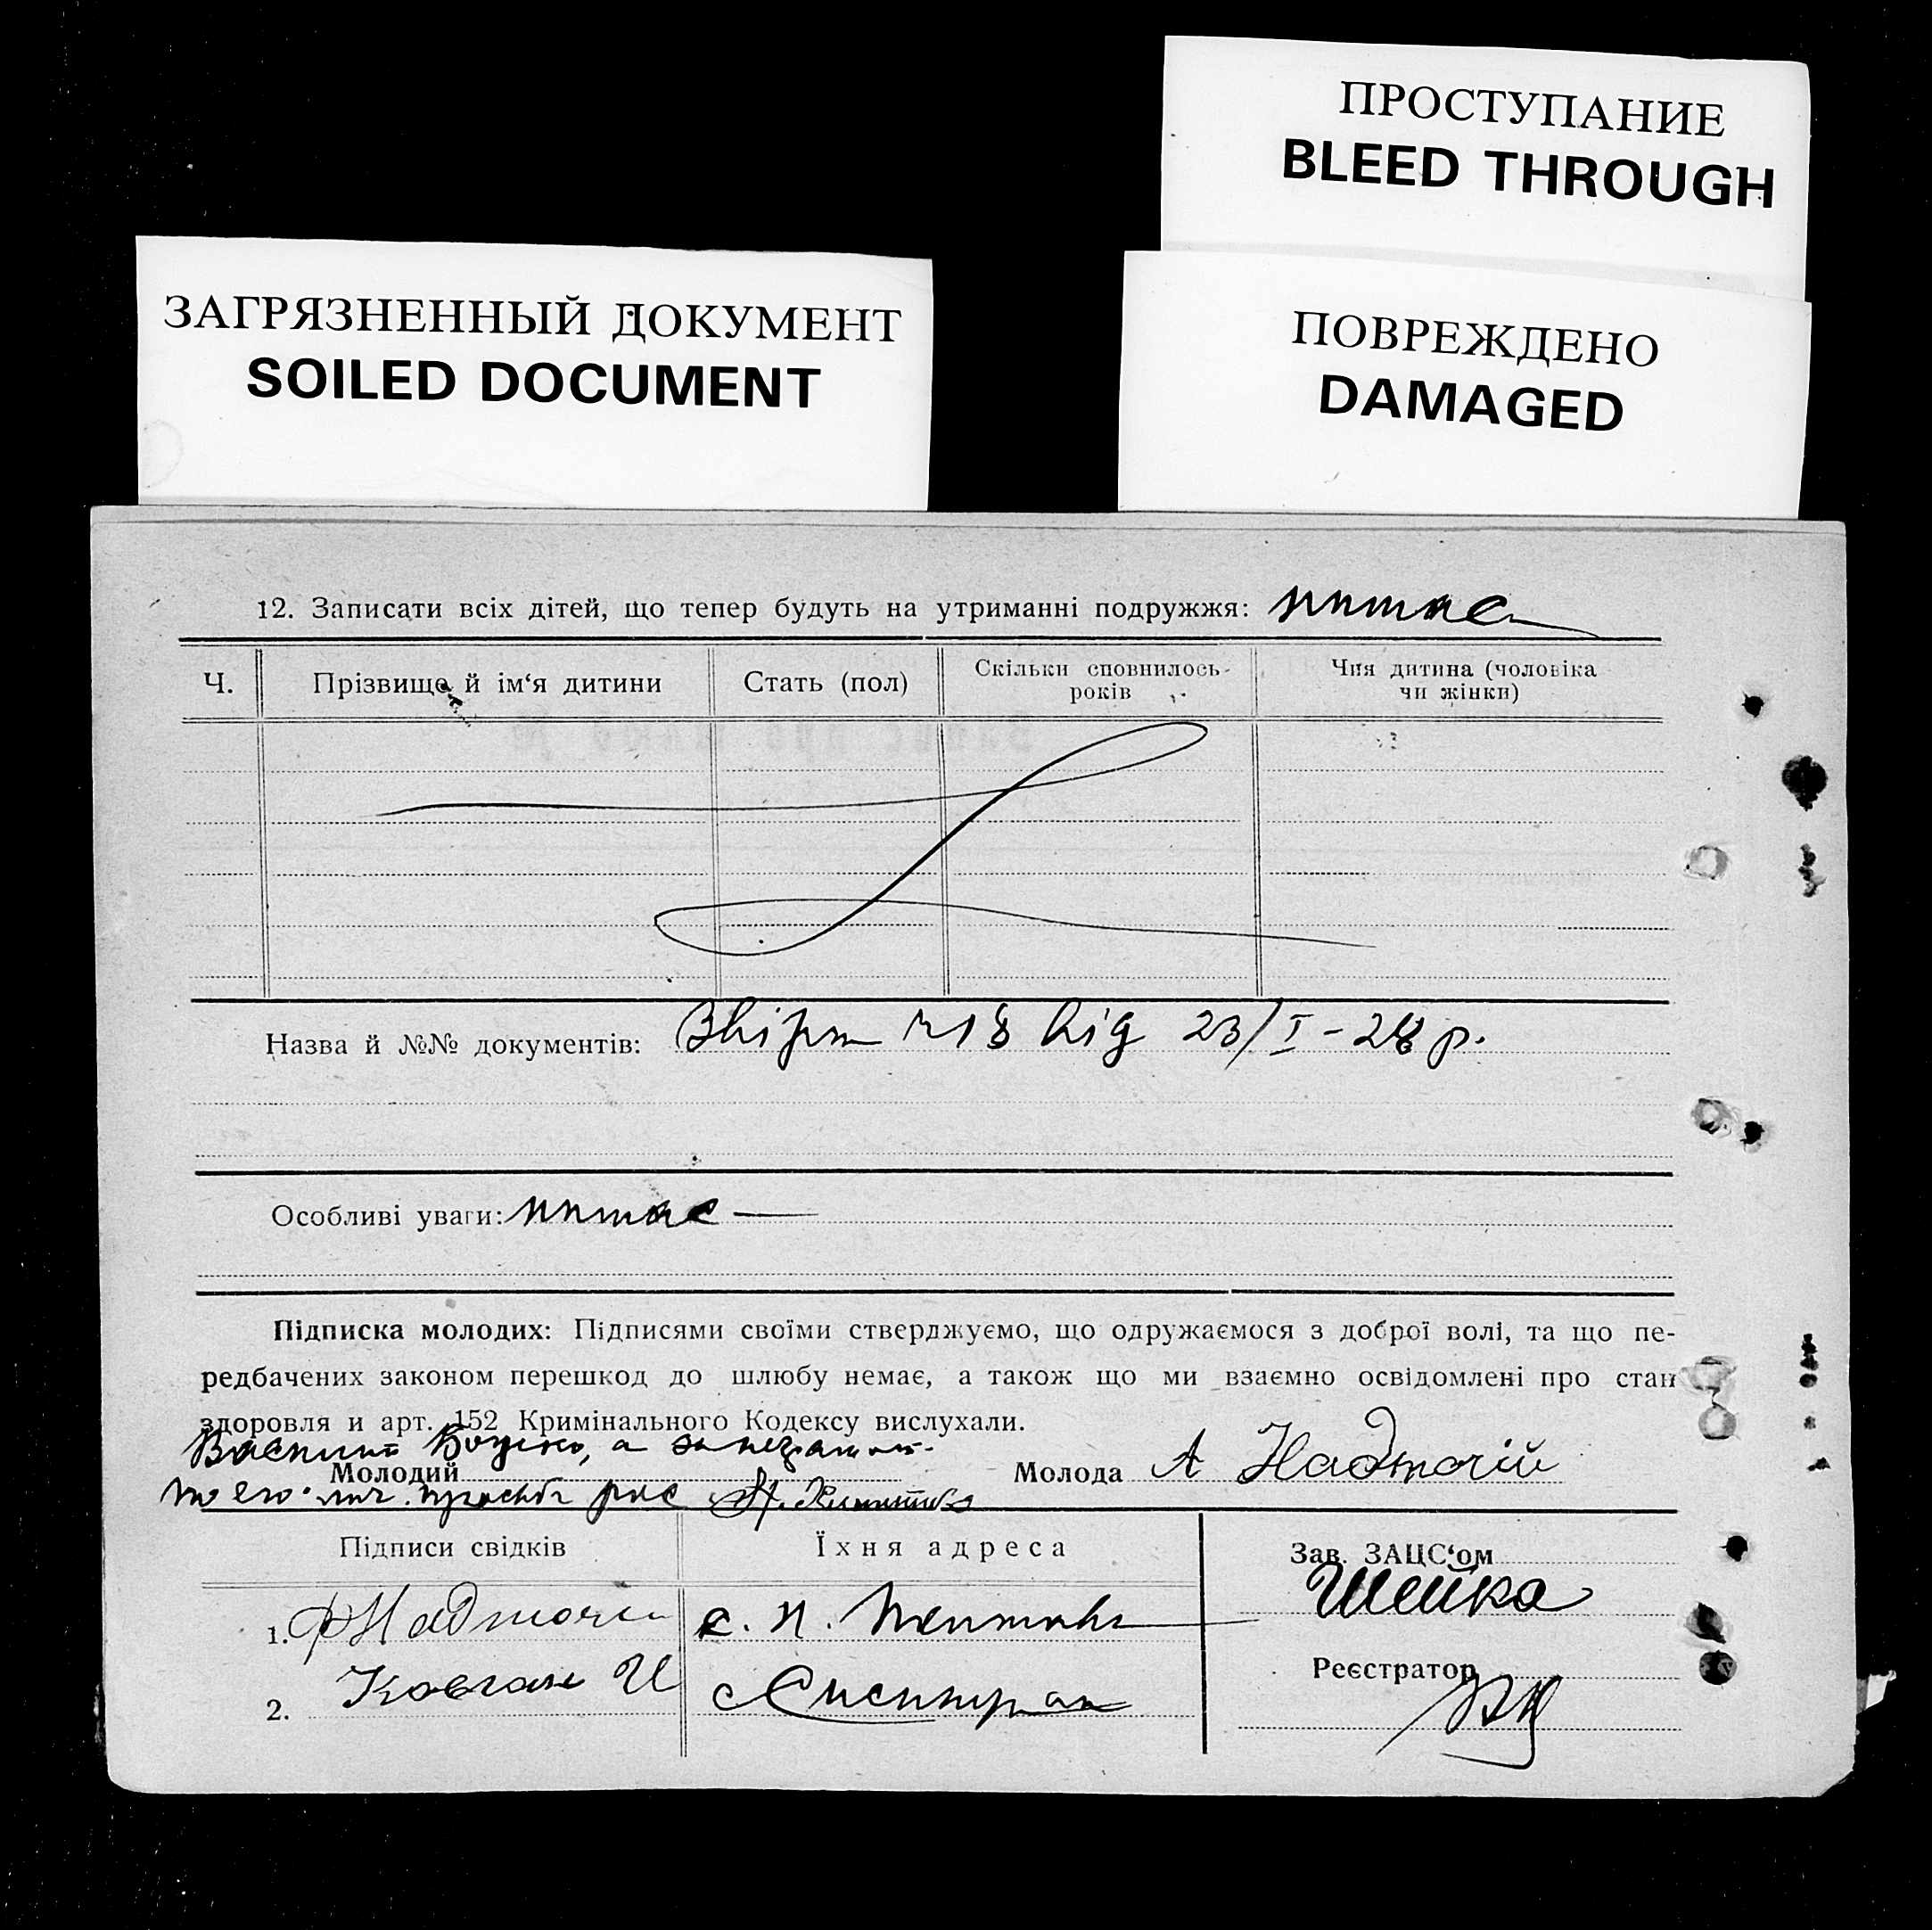 ПРОСТУПАНИЕ
BLEED THROUGH
ЗАГРЯЗНЕННЫЙ ДОКУМЕНТ
SOILED DOCUMENT
ПОВРЕЖДЕНО
DAMAGED
12. Записати всіх дітей, що тепер будуть на утриманні подружжя:
Ч. Прізвище й ім‘я дитини Стать (пол) Скільки сповнилось років Чия дитина (чоловіка чи жінки)
Назва й №№ документів: від 23/I-28 р.
Особливі уваги:
Підписка молодих: Підписями своїми стверджуємо, що одружаємося з доброї волі, та що пе-
редбачених законом перешкод до шлюбу немає, а також що ми взаємно освідомлені про стан
здоровля и арт. 152 Кримінального Кодексу вислухали.
Молодий Молода А Надточій
Підписи свідків Їхня адреса Зав. ЗАЦС‘ом
Шейка
1. с. П.
Реєстратор
2. Ковган И